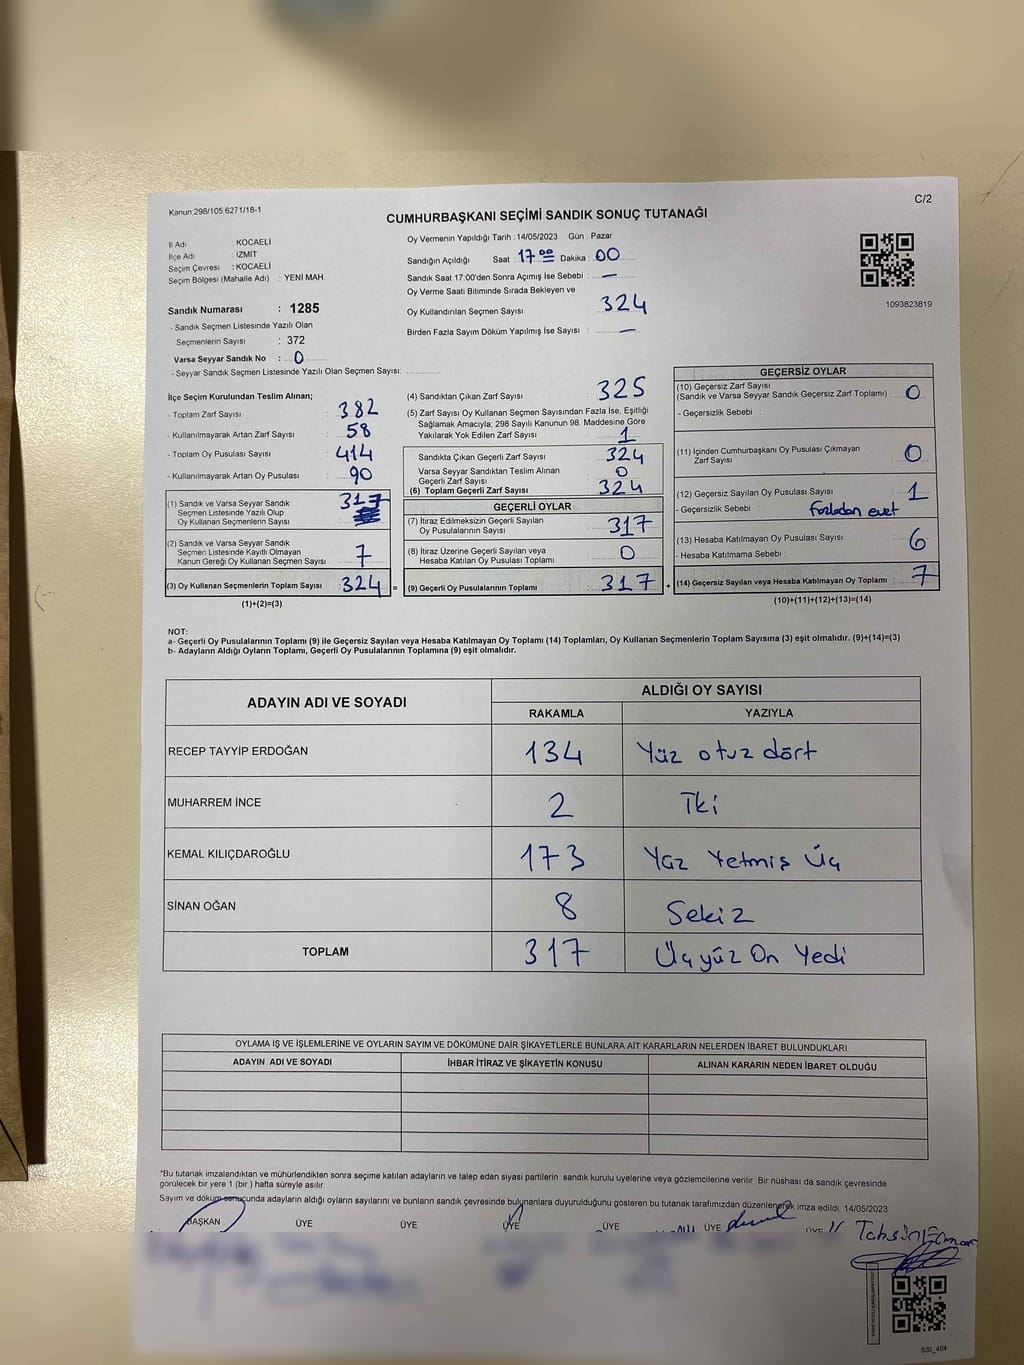 Kanun:298/105 6271/18-1
C/2
CUMHURBAŞKANI SEÇİMİ SANDIK SONUÇ TUTANAĞI
İl Adı : KOCAELİ
İlçe Adı : İZMİT
Seçim Çevresi : KOCAELİ
Seçim Bölgesi (Mahalle Adı) : YENİ MAH.
Oy Vermenin Yapıldığı Tarih :14/05/2023 Gün : Pazar
Sandığın Açıldığı Saat : 17 00 Dakika : 00
Sandık Saat 17:00'den Sonra Açımış İse Sebebi : —
Oy Verme Saati Bitiminde Sırada Bekleyen ve
Oy Kullandırılan Seçmen Sayısı : 324
Birden Fazla Sayım Döküm Yapılmış İse Sayısı : —
1093823819
Sandık Numarası : 1285
- Sandık Seçmen Listesinde Yazılı Olan
Seçmenlerin Sayısı : 372
Varsa Seyyar Sandık No : 0
- Seyyar Sandık Seçmen Listesinde Yazılı Olan Seçmen Sayısı:
İlçe Seçim Kurulundan Teslim Alınan;
- Toplam Zarf Sayısı : 382
- Kullanılmayarak Artan Zarf Sayısı : 58
- Toplam Oy Pusulası Sayısı : 414
- Kullanılmayarak Artan Oy Pusulası : 90
(1) Sandık ve Varsa Seyyar Sandık
Seçmen Listesinde Yazılı Olup
Oy Kullanan Seçmenlerin Sayısı : 317
(2) Sandık ve Varsa Seyyar Sandık
Seçmen Listesinde Kayıtlı Olmayan
Kanun Gereği Oy Kullanan Seçmen Sayısı : 7
(3) Oy Kullanan Seçmenlerin Toplam Sayısı : 324 =
(1)+(2)=(3)
(4) Sandıktan Çıkan Zarf Sayısı : 325
(5) Zarf Sayısı Oy Kullanan Seçmen Sayısından Fazla İse, Eşitliği
Sağlamak Amacıyla; 298 Sayılı Kanunun 98. Maddesine Göre
Yakılarak Yok Edilen Zarf Sayısı : 1
Sandıkta Çıkan Geçerli Zarf Sayısı : 324
Varsa Seyyar Sandıktan Teslim Alınan
Geçerli Zarf Sayısı : 0
(6) Toplam Geçerli Zarf Sayısı : 324
GEÇERLİ OYLAR
(7) İtiraz Edilmeksizin Geçerli Sayılan
Oy Pusulalarının Sayısı : 317
(8) İtiraz Üzerine Geçerli Sayılan veya
Hesaba Katılan Oy Pusulası Toplamı : 0
(9) Geçerli Oy Pusulalarının Toplamı : 317 +
GEÇERSİZ OYLAR
(10) Geçersiz Zarf Sayısı
(Sandık ve Varsa Seyyar Sandık Geçersiz Zarf Toplamı) : 0
- Geçersizlik Sebebi :
(11) İçinden Cumhurbaşkanı Oy Pusulası Çıkmayan
Zarf Sayısı : 0
(12) Geçersiz Sayılan Oy Pusulası Sayısı : 1
- Geçersizlik Sebebi : fazladan evet
(13) Hesaba Katılmayan Oy Pusulası Sayısı : 6
- Hesaba Katılmama Sebebi :
(14) Geçersiz Sayılan veya Hesaba Katılmayan Oy Toplamı : 7
(10)+(11)+(12)+(13)=(14)
NOT:
a- Geçerli Oy Pusulalarının Toplamı (9) ile Geçersiz Sayılan veya Hesaba Katılmayan Oy Toplamı (14) Toplamları, Oy Kullanan Seçmenlerin Toplam Sayısına (3) eşit olmalıdır. (9)+(14)=(3)
b- Adayların Aldığı Oyların Toplamı, Geçerli Oy Pusulalarının Toplamına (9) eşit olmalıdır.
ADAYIN ADI VE SOYADI ALDIĞI OY SAYISI
RAKAMLA YAZIYLA
RECEP TAYYİP ERDOĞAN 134 Yüz otuz dört
MUHARREM İNCE 2 İki
KEMAL KILIÇDAROĞLU 173 Yüz Yetmiş Üç
SİNAN OĞAN 8 Sekiz
TOPLAM 317 Üçyüz On Yedi
OYLAMA İŞ VE İŞLEMLERİNE VE OYLARIN SAYIM VE DÖKÜMÜNE DAİR ŞİKAYETLERLE BUNLARA AİT KARARLARIN NELERDEN İBARET BULUNDUKLARI
ADAYIN ADI VE SOYADI İHBAR İTİRAZ VE ŞİKAYETİN KONUSU ALINAN KARARIN NEDEN İBARET OLDUĞU
*Bu tutanak imzalandıktan ve mühürlendikten sonra seçime katılan adayların ve talep eden siyasi partilerin sandık kurulu üyelerine veya gözlemcilerine verilir. Bir nüshası da sandık çevresinde
görülecek bir yere 1 (bir ) hafta süreyle asılır.
Sayım ve döküm sonucunda adayların aldığı oyların sayılarını ve bunların sandık çevresinde bulunanlara duyurulduğunu gösteren bu tutanak tarafımızdan düzenlenerek imza edildi. 14/05/2023
BAŞKAN ÜYE ÜYE ÜYE ÜYE ÜYE ÜYE
SSI_404